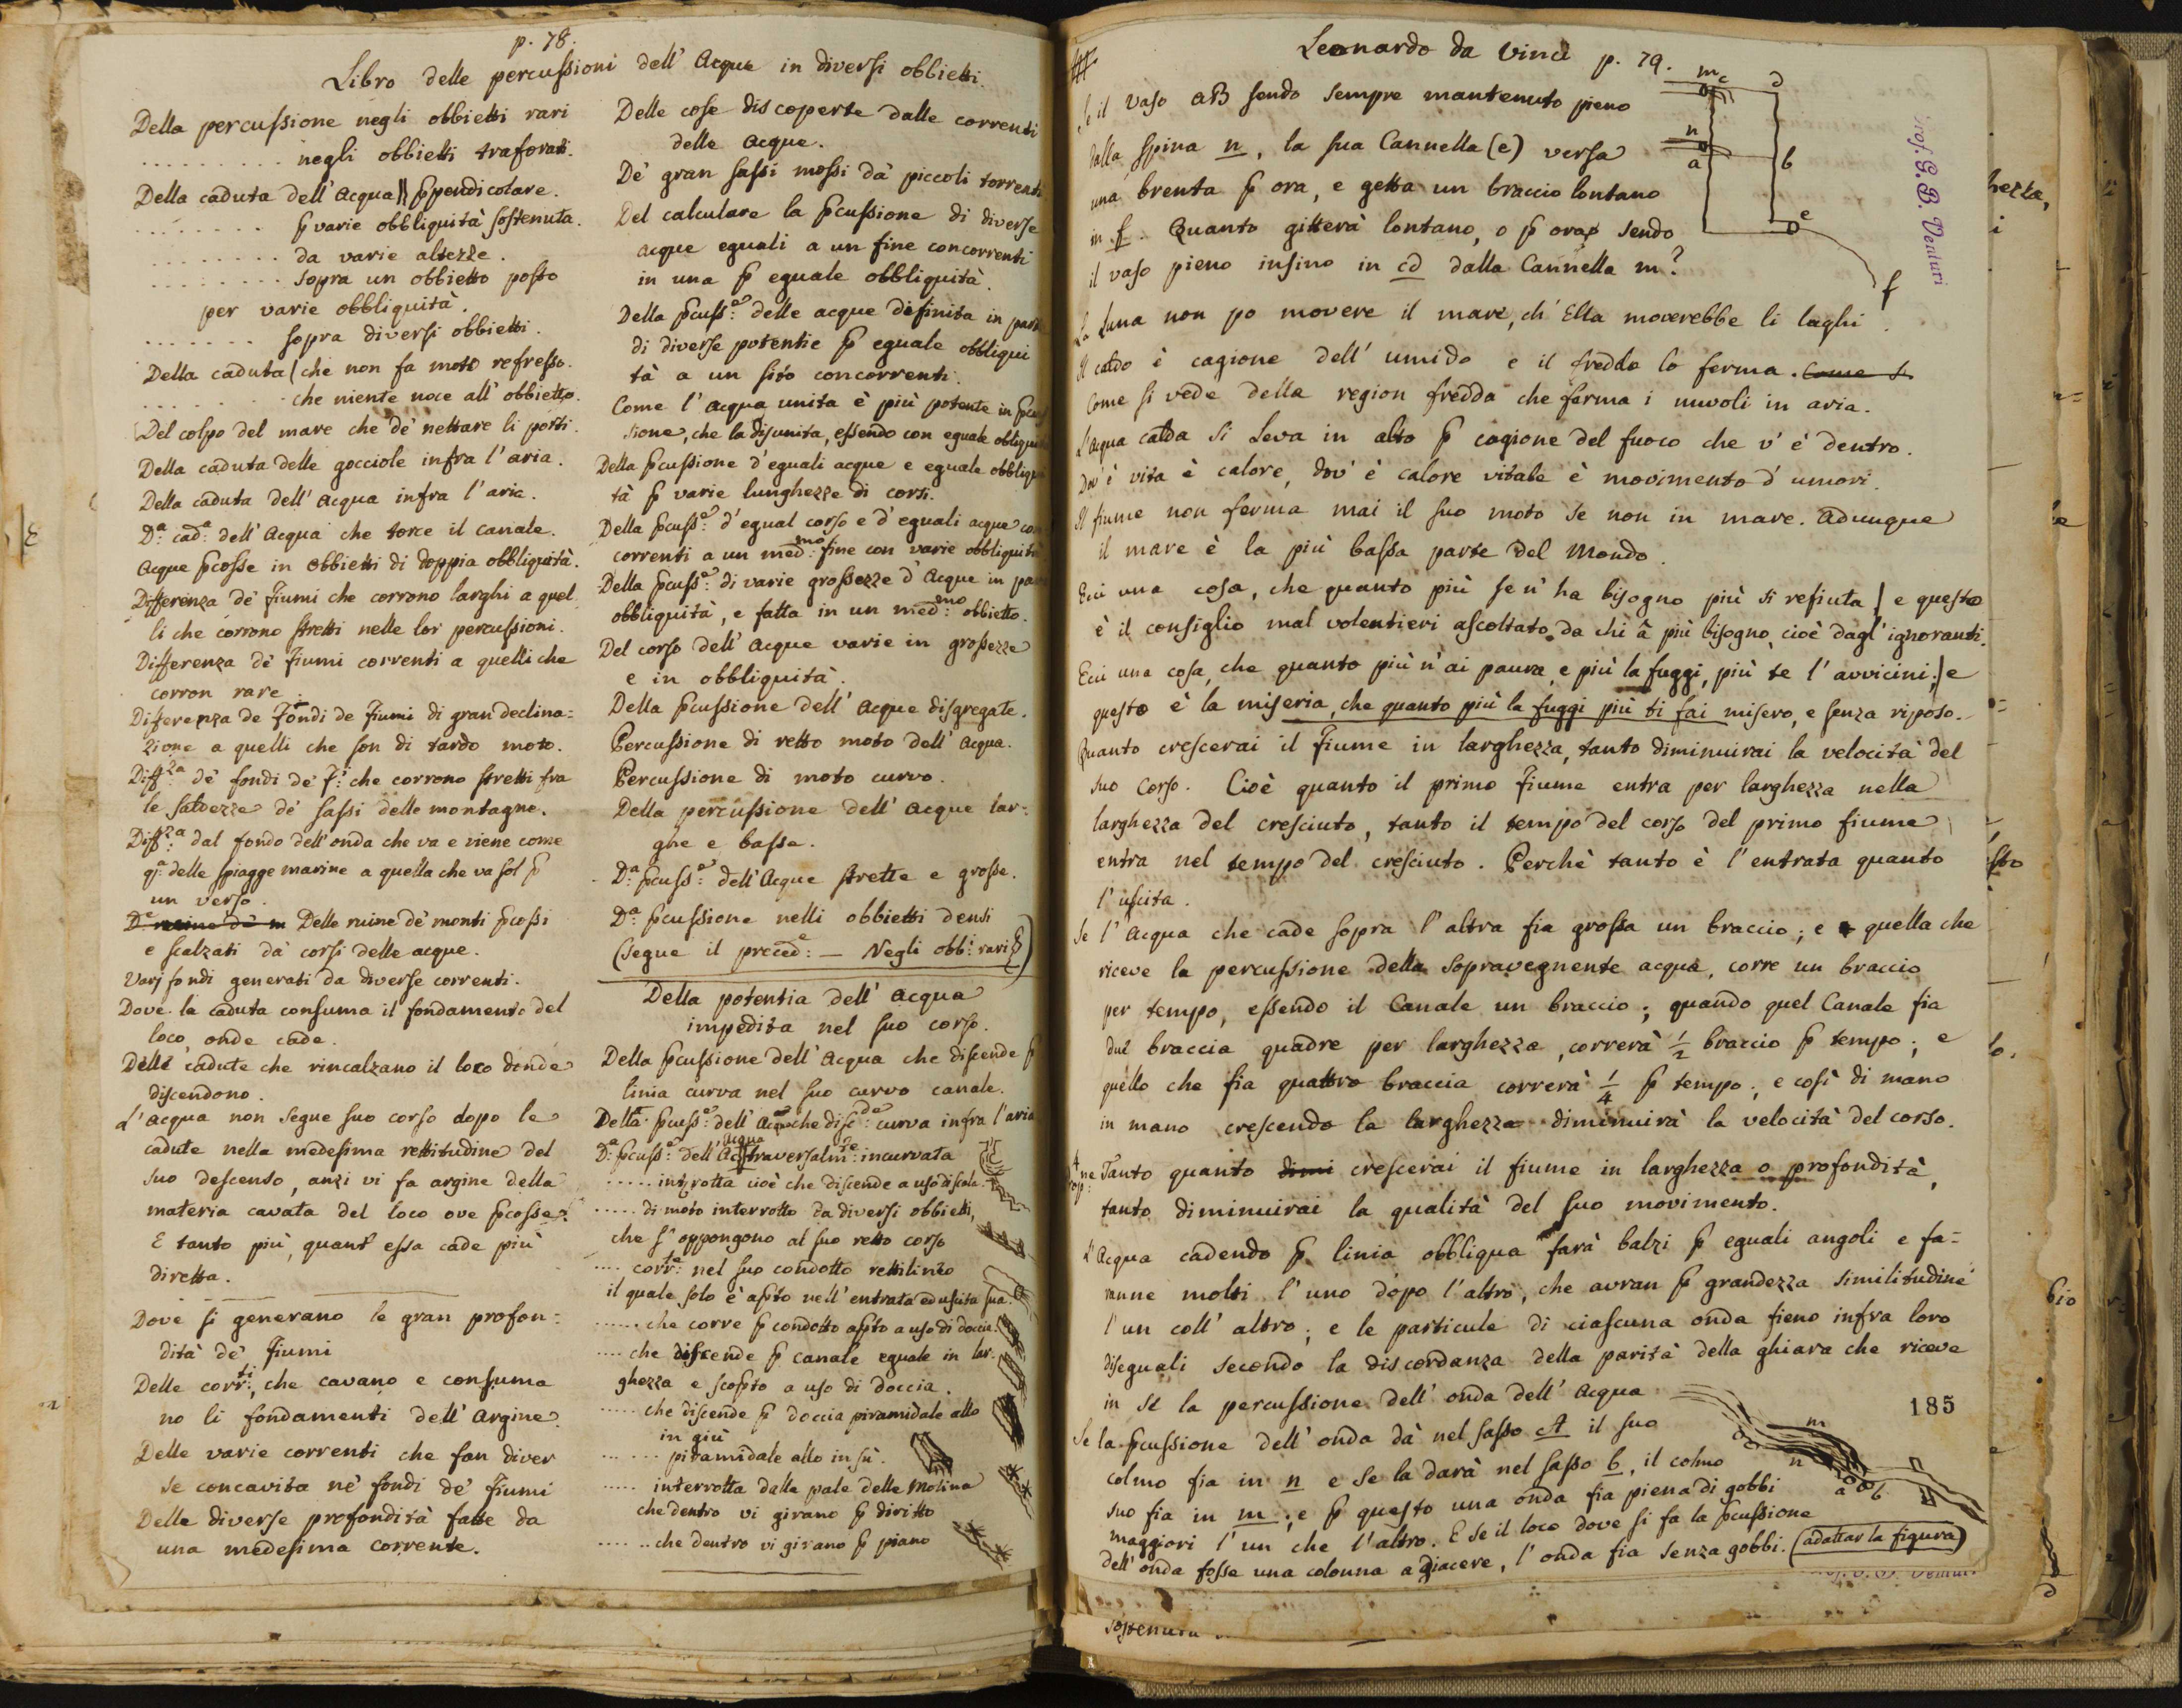 p. 78.
Libro delle percussioni dell' Acque in diversi obbietti.
Della percussione negli obbietti rari
.......... negli obbietti traforati.
Della caduta dell' Acqua || ꝑpendicolare.
........ ꝑ varie obbliquità sostenuta.
......... da varie altezze.
......... sopra un obbietto posto
per varie obbliquità.
....... sopra diversi obbietti.
Della caduta (che non fa moto refresso.
......... che niente noce all' obbietto.
Del colpo del mare che de' nettare li porti.
Della caduta delle gocciole infra l'aria.
Della caduta dell' Acqua infra l'aria.
D.a cad.a dell' Acqua che torce il canale.
Acque ꝑcosse in obbietti di doppia obbliquità.
Differenza de' fiumi che corrono larghi a quel
li che corrono stretti nelle lor percussioni.
Differenza de' fiumi correnti a quelli che
corron rare.
Differenza de fondi de fiumi di gran declina=
zione a quelli che son di tardo moto.
Diff.za de' fondi de' f.i che corrono stretti fra
le saldezze de' sassi delle montagne.
Diff.za dal fondo dell'onda che va e viene come
q.a delle spiagge marine a quella che va sol ꝑ
un verso.
Delle ruine de' monti ꝑcossi
e scalzati da' corsi delle acque.
Varj fondi generati da diverse correnti.
Dove la caduta consuma il fondamento del
loco, onde cade.
Delle cadute che rincalzano il loco donde
discendono.
L'acqua non segue suo corso dopo le
cadute nella medesima rettitudine del
suo descenso, anzi vi fa argine della
materia cavata del loco ove ꝑcosse.
E tanto più, quant' essa cade più
diretta.
Dove si generano le gran profon=
dità de' fiumi
Delle corr.ti, che cavano e consuma
no li fondamenti dell' Argine.
Delle varie correnti che fan diver
se concavita ne' fondi de' fiumi
Delle diverse profondità fatte da
una medesima corrente.
Delle cose discoperte dalle correnti
delle acque.
De' gran sassi mossi da' piccoli torrenti
Del calculare la ꝑcussione di diverse
acque eguali a un fine concorrenti
in una ꝑ eguale obbliquità.
Della ꝑcuss.e delle acque definita in
di diverse potentie ꝑ eguale obbliqui
tà a un sito concorrenti.
Come l'acqua unita è più potente in
sione, che la disunita, essendo con eguale
Della ꝑcussione d'eguali acque e eguale
tà ꝑ varie lunghezze di corsi.
Della ꝑcuss.e d'egual corso e d'eguali acque con
correnti a un med.mo fine con varie obbliquità
Della ꝑcuss.e di varie grossezze d'Acque in
obbliquità, e fatta in un med.mo obbietto.
Del corso dell' Acque varie in grossezze
e in obbliquità.
Della ꝑcussione dell' Acque disgregate.
Percussione di retto moto dell' Acqua.
Percussione di moto curvo.
Della percussione dell' Acque lar=
ghe e basse.
D.a ꝑcuss.e dell' Acque strette e grosse.
D.a ꝑcussione nelli obbietti densi
(segue il preced.e — Negli obb.i rari &)
Della potentia dell' Acqua
impedita nel suo corso.
Della ꝑcussione dell' Acqua che discende ꝑ
linia curva nel suo curvo canale.
Della ꝑcuss.e dell' Acqua che disc.de curva infra l'aria
D.a ꝑcuss.e dell' Acqua traversalm.te incurvata
..... interrotta cioè che discende a uso di scala.
..... di moto interrotto da diversi obbietti,
che s'oppongono al suo retto corso
.... corr.te nel suo condotto rettilineo
il quale solo è aꝑto nell' entrata ed uscita sua.
...... che corre ꝑ condotto aꝑto a uso di doccia.
.... che discende ꝑ canale eguale in lar-
ghezza e scoꝑto a uso di doccia.
..... che discende ꝑ doccia piramidale allo
in giù
...... piramidale allo in sù.
..... interrotta dalle pale delle Molina
che dentro vi girano ꝑ diritto
...... che dentro vi girano ꝑ piano
Leonardo da Vinci p. 79.
Se il vaso aB sendo sempre mantenuto pieno
dalla spina n, la sua Cannella (e) versa
una brenta ꝑ ora, e getta un braccio lontano
in f. Quanto gitterà lontano, o ꝑ ora, sendo
il vaso pieno insino in cd dalla Cannella m?
m c d
n
a b
e
f
Prof. G. B. Venturi
La Luna non po movere il mare, ch' Ella moverebbe li laghi.
Il caldo è cagione dell' umido e il freddo lo ferma. Come si
Come si vede della region fredda che ferma i nuvoli in aria.
L'acqua calda si leva in alto ꝑ cagione del fuoco che v'è dentro.
Dov' è vita è calore, dov' è calore vitale è movimento d'umori.
Il fiume non ferma mai il suo moto se non in mare. Adunque
il mare è la più bassa parte del Mondo.
Ecci una cosa, che quanto più se n'ha bisogno più si refiuta, e questo
è il consiglio mal volentieri ascoltato da chi à più bisogno, cioè dagl' ignoranti.
Ecci una cosa, che quanto più n'ai paura, e più la fuggi, più te l'avvicini; e
questo è la miseria, che quanto più la fuggi più ti fai misero, e senza riposo.
Quanto crescerai il fiume in larghezza, tanto diminuirai la velocità del
suo corso. Cioè quanto il primo fiume entra per larghezza nella
larghezza del cresciuto, tanto il tempo del corso del primo fiume
entra nel tempo del cresciuto. Perchè tanto è l'entrata quanto
l'uscita.
Se l'Acqua che cade sopra l'altra fia grossa un braccio; e quella che
riceve la percussione della sopravegnente acqua, corre un braccio
per tempo, essendo il Canale un braccio; quando quel Canale fia
due braccia quadre per larghezza, correrà 1/2 braccio ꝑ tempo; e
quello che fia quattro braccia correrà 1/4 ꝑ tempo; e così di mano
in mano crescendo la larghezza diminuirà la velocità del corso.
Tanto quanto dimi crescerai il fiume in larghezza o profondità,
tanto diminuirai la qualità del suo movimento.
L'Acqua cadendo ꝑ linia obbliqua farà balzi ꝑ eguali angoli e fa=
ranne molti l'uno dopo l'altro, che avran ꝑ grandezza similitudine
l'un coll' altro; e le particule di ciascuna onda fieno infra loro
diseguali secondo la discordanza della parità della ghiara che riceve
in se la percussione dell' onda dell' Acqua
185
Se la ꝑcussione dell' onda dà nel sasso A il suo
colmo fia in n e se la darà nel sasso b, il colmo
suo fia in m; e ꝑ questo una onda fia piena di gobbi
maggiori l'un che l'altro. E se il loco dove si fa la ꝑcussione
dell' onda fosse una colonna a giacere, l'onda fia senza gobbi. (adattar la figura)
m
n
a b
sostenuta